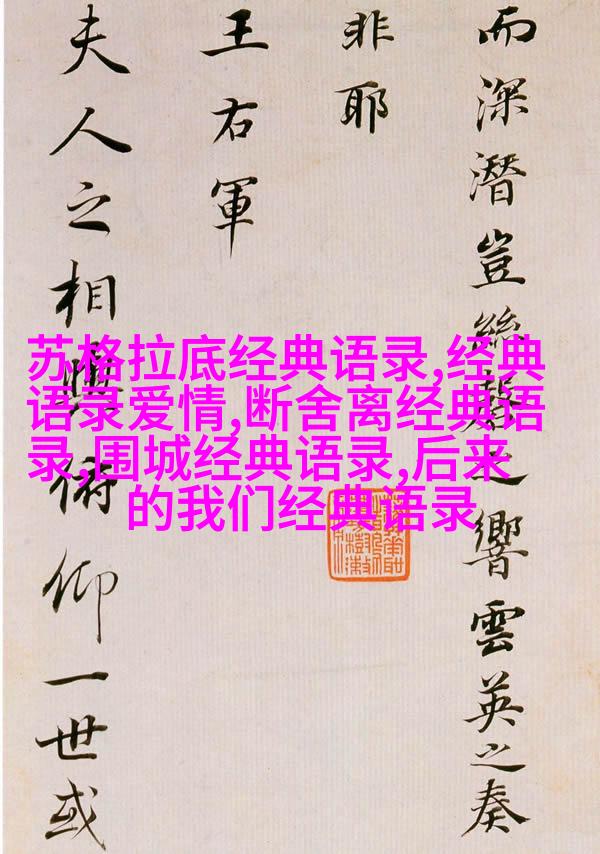 而深潛豈絲之響雲英之奏
非耶
王右軍
夫人之相與俯仰一世或
苏格拉底经典语录,经典
语录爱情,断舍离经典语
录,围城经典语录,后来
的我们经典语录